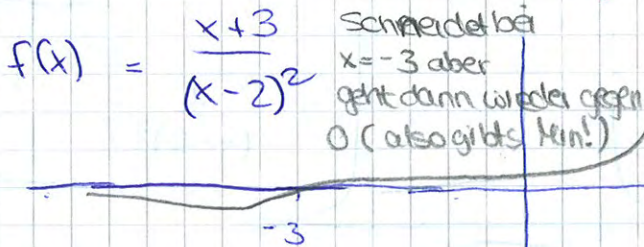 f(x) = x+3 / (x-2)²
Schneidet bei
x=-3 aber
geht dann wieder gegen
0 (also gibts Min!)
-3